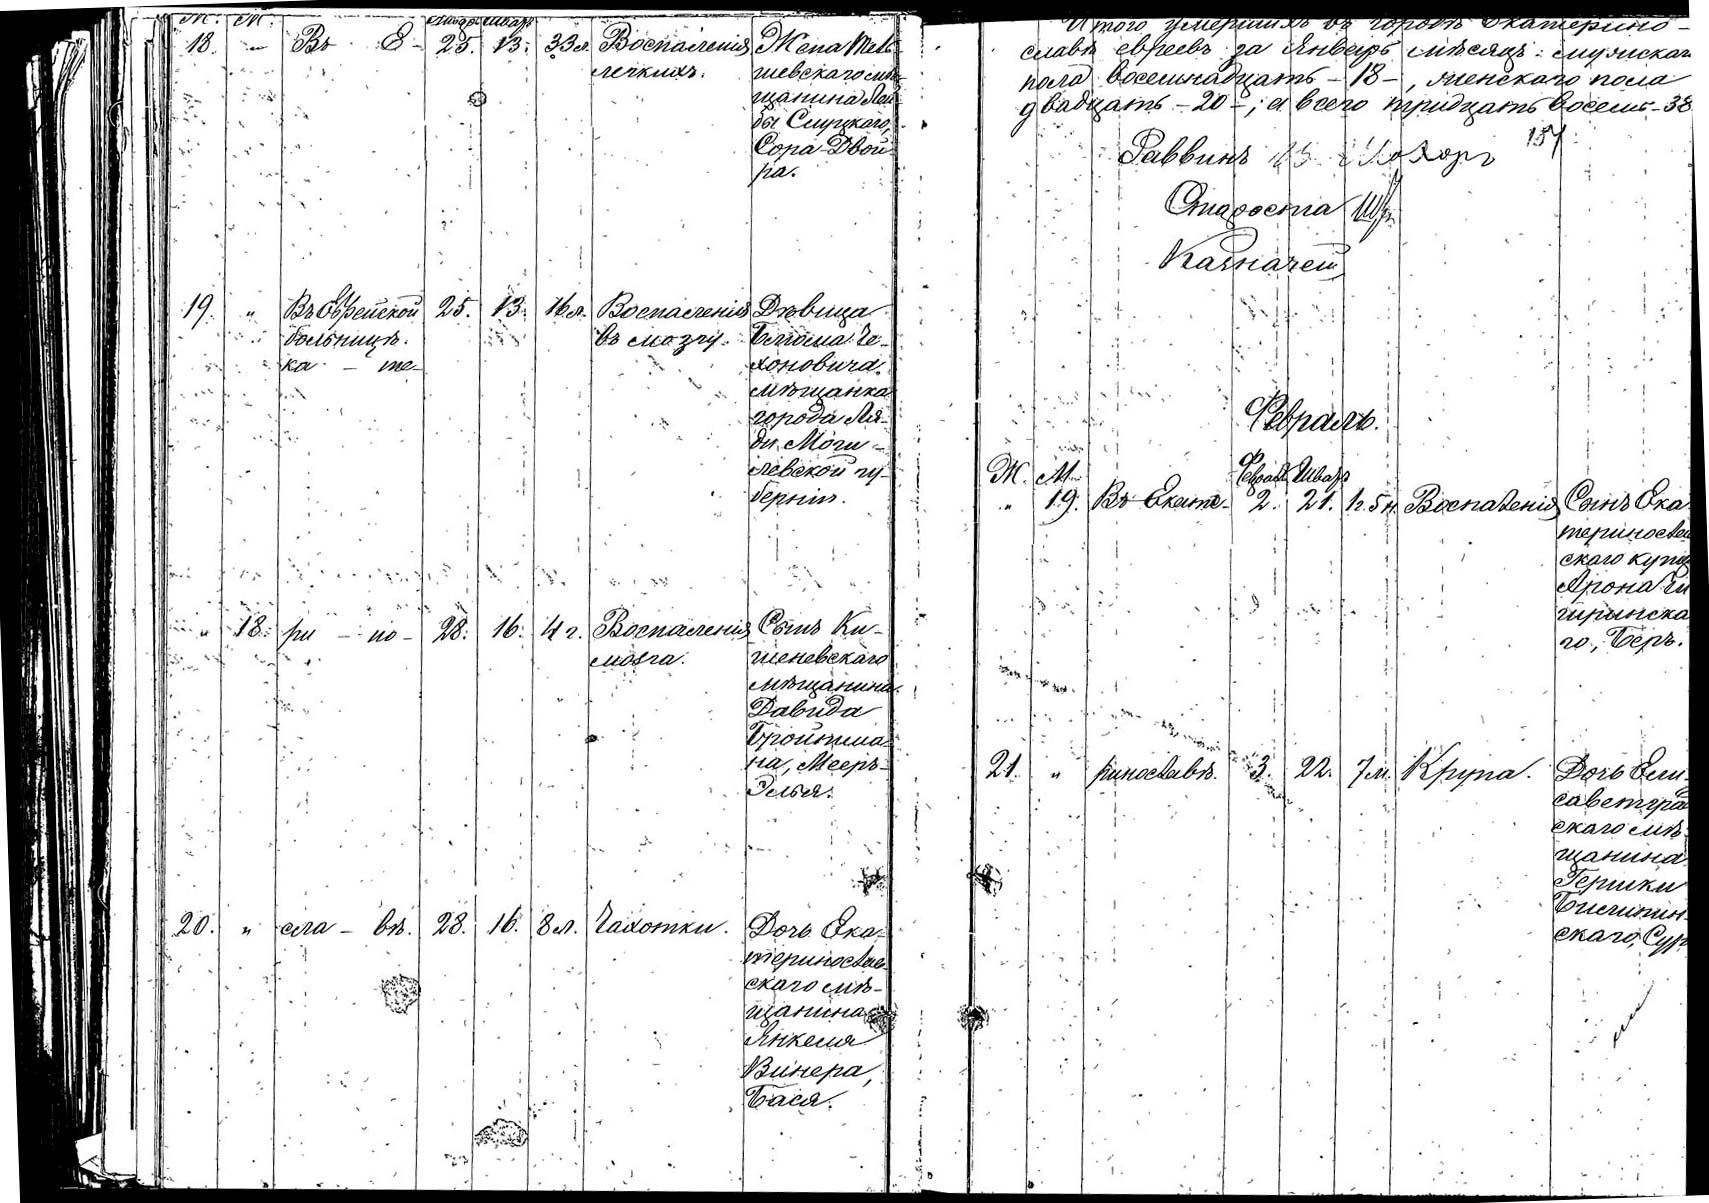 Ж. М.
Январь Шватъ
18. " Въ Е- 25. 13. 33 л. Воспаленія Жена
легкихъ. шевскаго мѣ-
щанина Лей-
бы Слуцкаго,
Сора-Двой-
ра.
19. " Въ Еврейской 25. 13. 16 л. Воспаленія Дѣвица
больницѣ. въ мозгу.
ка - те-
хоновича,
мѣщанка
города Ля-
ди Моги-
левской гу-
берніи.
" 18. ри - но- 28. 16. 4 г. Воспаленія Сынъ Ки-
мозга. шеневскаго
мѣщанина
Давида
Бройтма-
на, Мееръ-
Элья.
20. " сла - вѣ. 28. 16. 8 л. Чахотки. Дочь Ека-
теринослав-
скаго мѣ-
щанина
Янкеля
Винера,
Бася.
Итого умершихъ въ городѣ Екатерино-
славѣ евреевъ за Январь мѣсяцъ: мужскаго
пола восемнадцать - 18 -, женскаго пола
двадцать - 20 -; а всего тридцать восемь - 38
157
Раввинъ
Староста
Казначей
Февраль.
Ж. М. Февраль Шватъ
" 19. Въ Екате- 2. 21. 1 г. 5 м. Воспаленія Сынъ Ека-
теринослав-
скаго купца
Арона Чи-
гиринска-
го, Беръ.
21. " ринославѣ. 3. 22. 7 м. Крупа. Дочь Ели-
саветград-
скаго мѣ-
щанина
Гершки
скаго,